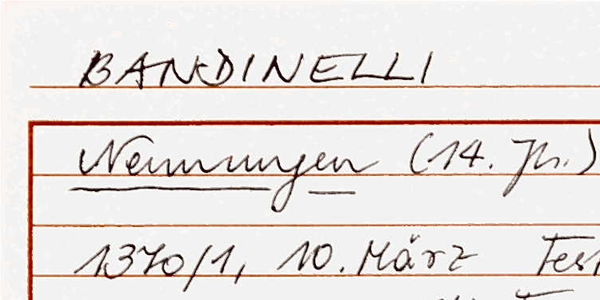 BANDINELLI
Nennungen (14. Jh.)
1370/1, 10. März